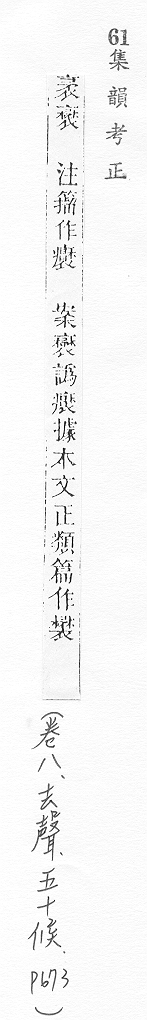 61集韻考正
袤 注籀作 案 譌 據本文正類篇作
(卷八、去聲、五十候、P673)